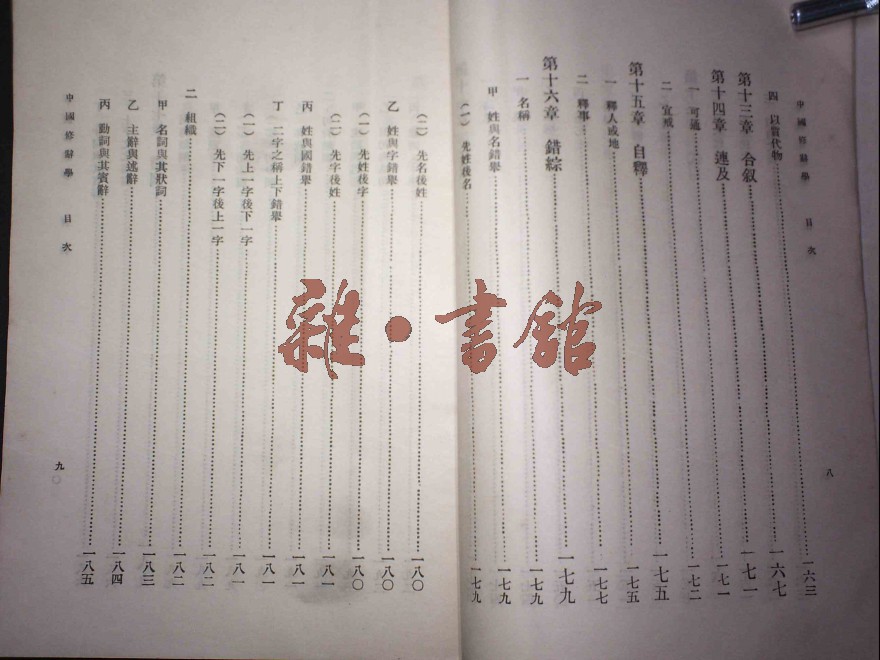 中國修辭學 目次
八
四 以質代物……一六三
第十三章 合叙……一六七
第十四章 連及……一七一
一 可通……一七一
二 宜戒……一七二
第十五章 自釋……一七五
一 釋人或地……一七五
二 釋事……一七七
第十六章 錯綜……一七九
一 名稱……一七九
甲 姓與名錯舉……一七九
（一） 先姓後名……一七九
（二） 先名後姓……一八〇
乙 姓與字錯舉……一八〇
（一） 先姓後字……一八〇
（二） 先字後姓……一八一
丙 姓與國錯舉……一八一
丁 二字之稱上下錯舉……一八一
（一） 先上一字後下一字……一八一
（二） 先下一字後上一字……一八二
二 組織……一八二
甲 名詞與其狀詞……一八三
乙 主辭與述辭……一八四
丙 動詞與其賓辭……一八五
中國修辭學 目次
九
雜·書館